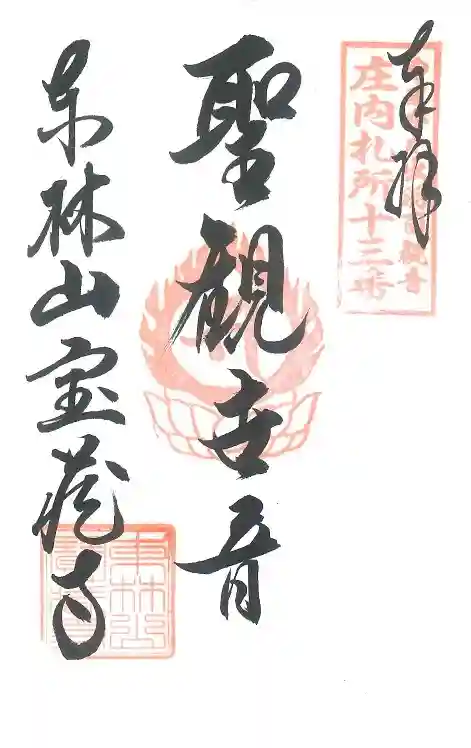 奉拝
庄内札所十三番
聖観世音
東林山宝蔵寺
東林山